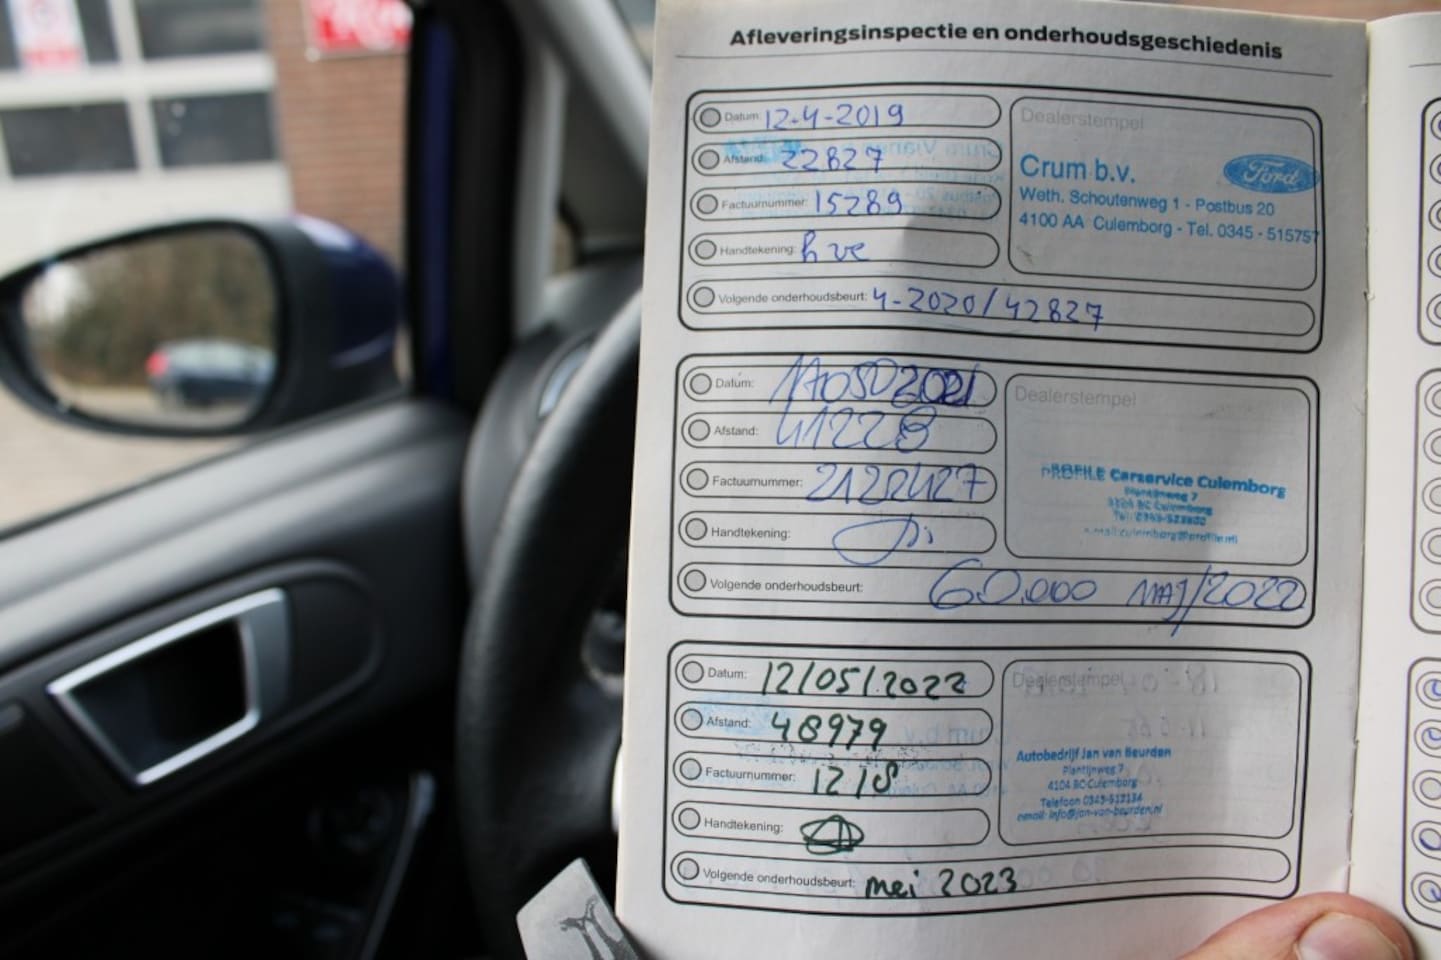 Afleveringsinspectie en onderhoudsgeschiedenis
Datum: 12-4-2019
Afstand: 22827
Factuurnummer: 15289
Handtekening:
Volgende onderhoudsbeurt: 4-2020/42827
Dealerstempel
Crum b.v.
Ford
Weth. Schoutenweg 1 - Postbus 20
4100 AA Culemborg - Tel. 0345 - 515757
Datum:
Afstand: 41228
Factuurnummer: 2122427
Handtekening:
Volgende onderhoudsbeurt: 60.000 MAJ/2022
Dealerstempel
PROFILE Carservice Culemborg
Plantijnweg 7
Culemborg
Datum: 12/05/2022
Afstand: 48979
Factuurnummer: 1218
Handtekening:
Volgende onderhoudsbeurt: mei 2023
Dealerstempel
Autobedrijf Jan van Beurden
Plantijnweg 7
4104 BC Culemborg
Telefoon 0345-513134
email: info@jan-van-beurden.nl